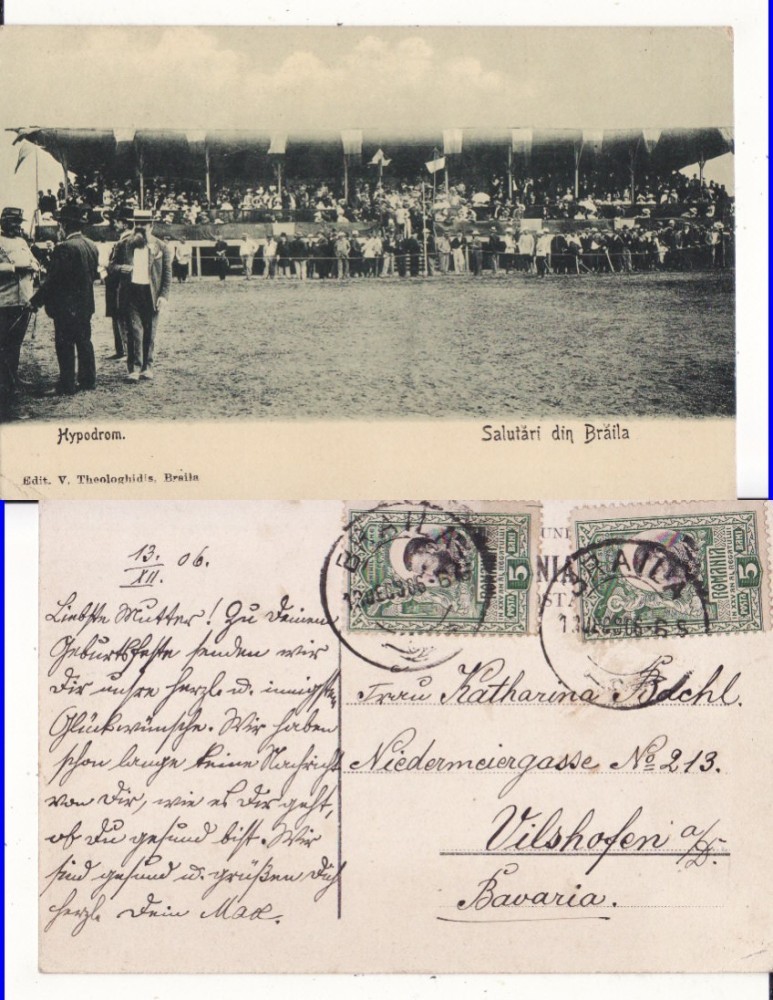 Hypodrom.
Salutări din Brăila
Edit. V. Theologhidis, Braila
13./XII. 06.
Liebste Mutter! Zu Deinem
Geburtsfeste senden wir
Dir unsre herzl. u. innigste
Glückwünsche. Wir haben
schon lange keine Nachricht
von Dir, wie es Dir geht,
ob Du gesund bist. Wir
sind gesund u. grüßen Dich
herzl. Dein Max.
BRAILA
13 DEC 906
5 BANI
POSTA
ROMANIA
5 BANI
POSTA
BRAILA
13 DEC 906
UNI
NIA
STA
Frau Katharina
Niedermeiergasse No 213.
Vilshofen a/D.
Bavaria.